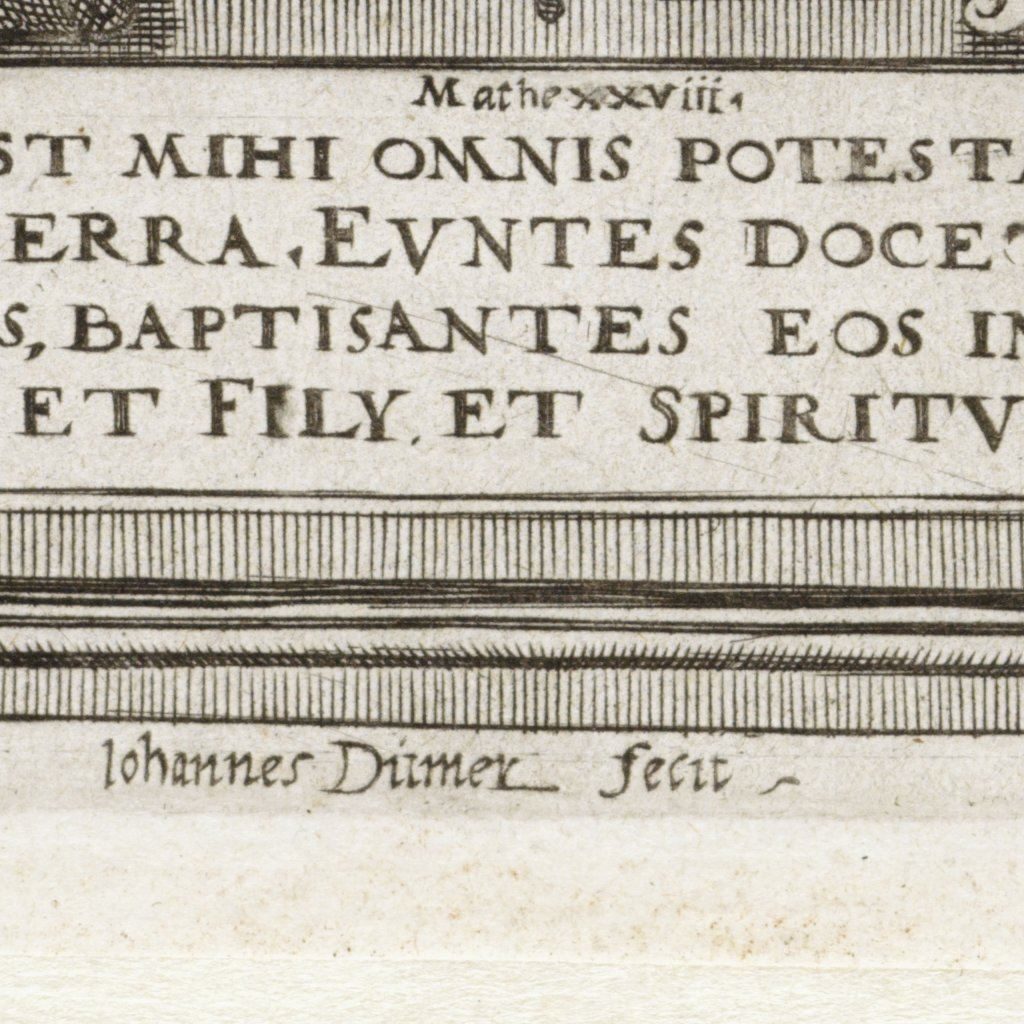 Mathe xxviii.
ST MIHI OMNIS POTESTA
ERRA. EVNTES DOCET
S, BAPTISANTES EOS IN
ET FILY, ET SPIRITV
Iohannes Ditmer fecit